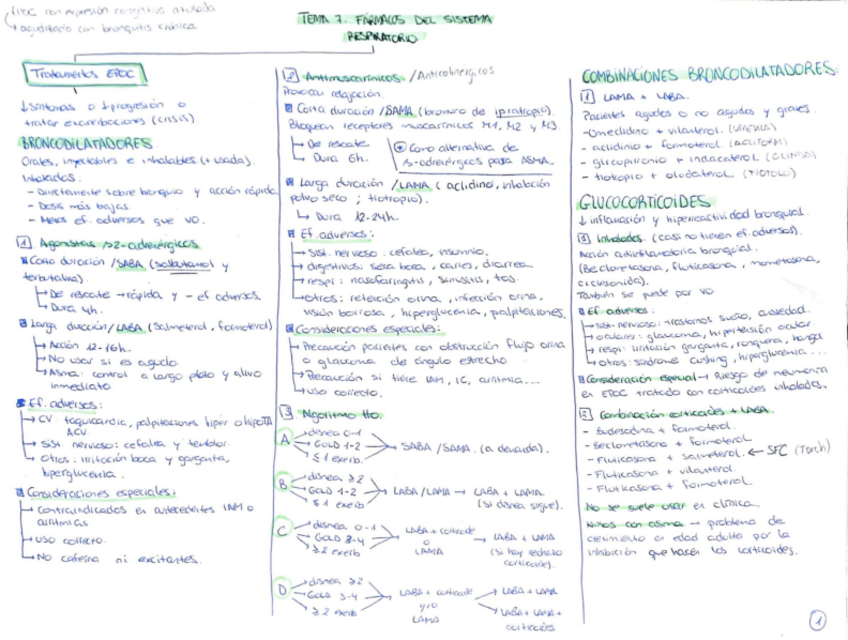 EPOC con expresión congestiva asociada
agudizado con bronquitis crónica
TEMA 7. FÁRMACOS DEL SISTEMA
RESPIRATORIO
Tratamientos EPOC
↓síntomas o ↓progresión o
tratar exacerbaciones (crisis)
BRONCODILATADORES
Orales, inyectables e inhalables (+ usada).
Inhalados:
- Directamente sobre bronquio y acción rápida
- Dosis más bajas.
- Menos ef. adversos que VO.
1 Agonistas β2-adrenérgicos
Corta duración /SABA (salbutamol y
terbutalina).
De rescate → rápida y - ef adversos.
Dura 4h.
Larga duración/LABA (salmeterol, formoterol)
Acción 12-16h.
No usar si es agudo.
Asma: control a largo plazo y alivio
inmediato
Ef. adversos:
CV taquicardia, palpitaciones hiper o hipoTA
ACV.
Sist. nervioso: cefalea y temblor.
Otros: irritación boca y garganta,
hiperglucemia.
Consideraciones especiales:
Contraindicados en antecedentes IAM o
arritmias
Uso correcto.
No cafeína ni excitantes.
2 Antimuscarínicos. /Anticolinérgicos
Provocan relajación.
Corta duración /SAMA (bromuro de ipratropio).
Bloquean receptores muscarínicos M1, M2 y M3.
De rescate
Dura 6h.
Como alternativa de
β-adrenérgicos para ASMA.
Larga duración /LAMA ( aclidino, inhalación
polvo seco ; tiotropio).
Dura 12-24h.
Ef. adversos:
Sist. nervioso: cefalea, insomnio.
digestivos: seca boca, caries, diarrea
respi: nasofaringitis, sinusitis, tos.
otros: retención orina, infección orina,
visión borrosa, hiperglucemia, palpitaciones.
Consideraciones especiales:
Precaución pacientes con obstrucción flujo orina
o glaucoma de ángulo estrecho
Precaución si tiene IAM, IC, arritmia...
Uso correcto.
3 Algoritmo tto.
A disnea 0-1
GOLD 1-2 → SABA /SAMA. (a demanda).
≤ 1 exacerb.
B disnea ≥2
GOLD 1-2 → LABA /LAMA → LABA + LAMA
≤1 exacerb (si disnea sigue).
C disnea 0-1 LABA + corticoide
GOLD 3-4 → o → LABA + LAMA
≥2 exacerb LAMA (si hay rechazo
corticoides).
D disnea ≥2
GOLD 3-4 LABA + corticoide → LABA + LAMA
≥2 exacerb y/o LABA + LAMA +
LAMA corticoides
COMBINACIONES BRONCODILATADORES.
1 LAMA + LABA.
Pacientes agudos o no agudos y graves.
- Umeclidino + vilanterol.
- aclidinio + formoterol.
- glicopirronio + indacaterol
- tiotropio + olodaterol
GLUCOCORTICOIDES
↓ inflamación y hiperreactividad bronquial.
1 Inhalados. (casi no tienen ef. adversos).
Acción antiinflamatoria bronquial.
(Beclometasona, fluticasona, mometasona,
ciclesonida).
También se puede por VO
Ef adversos.
sist. nervioso: trastornos sueño, ansiedad.
oculares: glaucoma, hipertensión ocular
respi: irritación garganta, ronquera, hongos
otros: síndrome Cushing, hiperglucemia...
Consideración especial → Riesgo de neumonía
en EPOC tratado con corticoides inhalados.
2 Combinación corticoides + LABA.
- Budesonida + formoterol.
- Beclometasona + formoterol
- Fluticasona + salmeterol. ← SFC (Torch)
- Fluticasona + vilanterol.
- Fluticasona + formoterol.
No se suele usar en clínica.
Niños con asma → problema de
crecimiento en edad adulta por la
inhibición que hacen los corticoides.
1